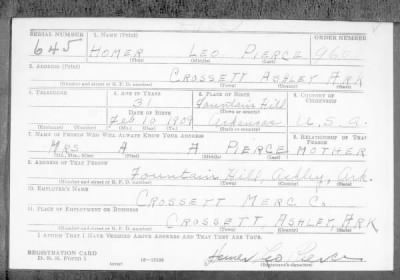 SERIAL NUMBER 1. NAME (Print) ORDER NUMBER
645 HOMER LEO PIERCE 960
(First) (Middle) (Last)
2. ADDRESS (Print)
CROSSETT ASHLEY ARK
(Number and street or R. F. D. number) (Town) (County) (State)
3. TELEPHONE 4. AGE IN YEARS 5. PLACE OF BIRTH 6. COUNTRY OF CITIZENSHIP
31 Fountain Hill
DATE OF BIRTH (Town or county)
Feb 10 1909 Arkansas U.S.A.
(Exchange) (Number) (Mo.) (Day) (Yr.) (State or country)
7. NAME OF PERSON WHO WILL ALWAYS KNOW YOUR ADDRESS 8. RELATIONSHIP OF THAT PERSON
MRS A A PIERCE MOTHER
(Mr., Mrs., Miss) (First) (Middle) (Last)
9. ADDRESS OF THAT PERSON
Fountain Hill, Ashley, Ark.
(Number and street or R. F. D. number) (Town) (County) (State)
10. EMPLOYER'S NAME
CROSSETT MERC. C.
11. PLACE OF EMPLOYMENT OR BUSINESS
CROSSETT, ASHLEY, ARK
(Number and street or R. F. D. number) (Town) (County) (State)
I AFFIRM THAT I HAVE VERIFIED ABOVE ANSWERS AND THAT THEY ARE TRUE.
REGISTRATION CARD
D. S. S. Form 1
Leo Pierce
(Registrant's signature)